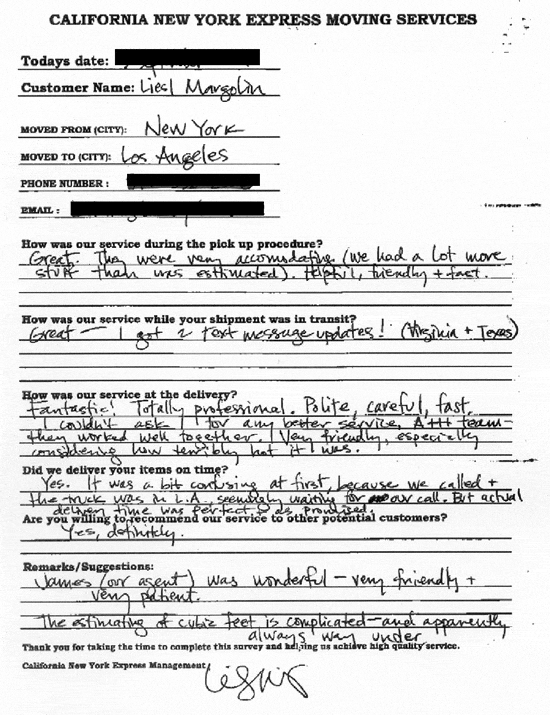 CALIFORNIA NEW YORK EXPRESS MOVING SERVICES
Todays date:
Customer Name: Liesl Margolin
MOVED FROM (CITY): New York
MOVED TO (CITY): Los Angeles
PHONE NUMBER :
EMAIL :
How was our service during the pick up procedure?
Great. They were very accomodating (we had a lot more
stuff than was estimated). Helpful, friendly + fast.
How was our service while your shipment was in transit?
Great — I got 2 text message updates! (Virginia + Texas)
How was our service at the delivery?
Fantastic! Totally professional. Polite, careful, fast.
I couldn't ask for any better service, A+++ team—
they worked well together. Very friendly, especially
considering how terribly hot it was.
Did we deliver your items on time?
Yes. It was a bit confusing at first, because we called +
the truck was in L.A., seemingly waiting for our call. But actual
delivery time was perfect & as promised.
Are you willing to recommend our service to other potential customers?
Yes, definitely.
Remarks/Suggestions:
James (our agent) was wonderful – very friendly +
very patient.
The estimating of cubic feet is complicated—and apparently
always way under
Thank you for taking the time to complete this survey and helping us achieve high quality service.
California New York Express Management